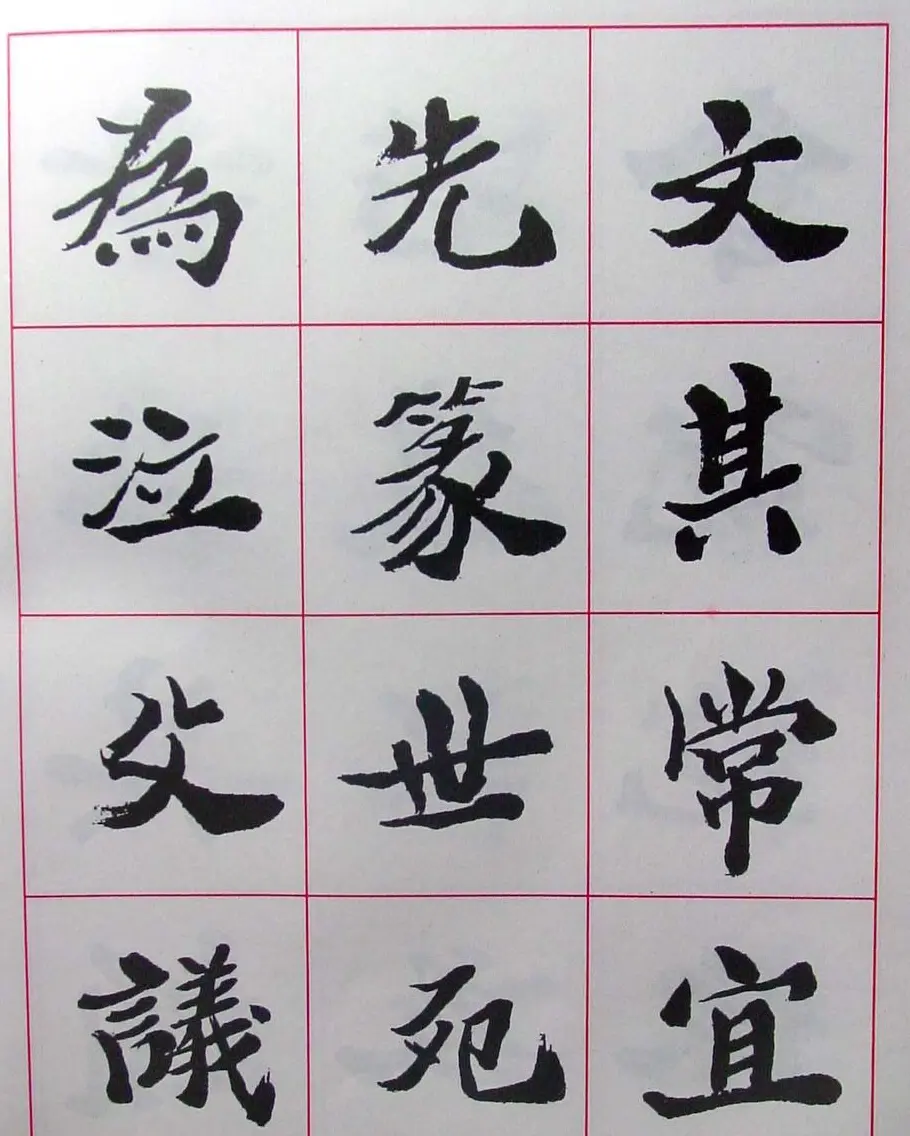 文其常宜
先篆世
為泣父議